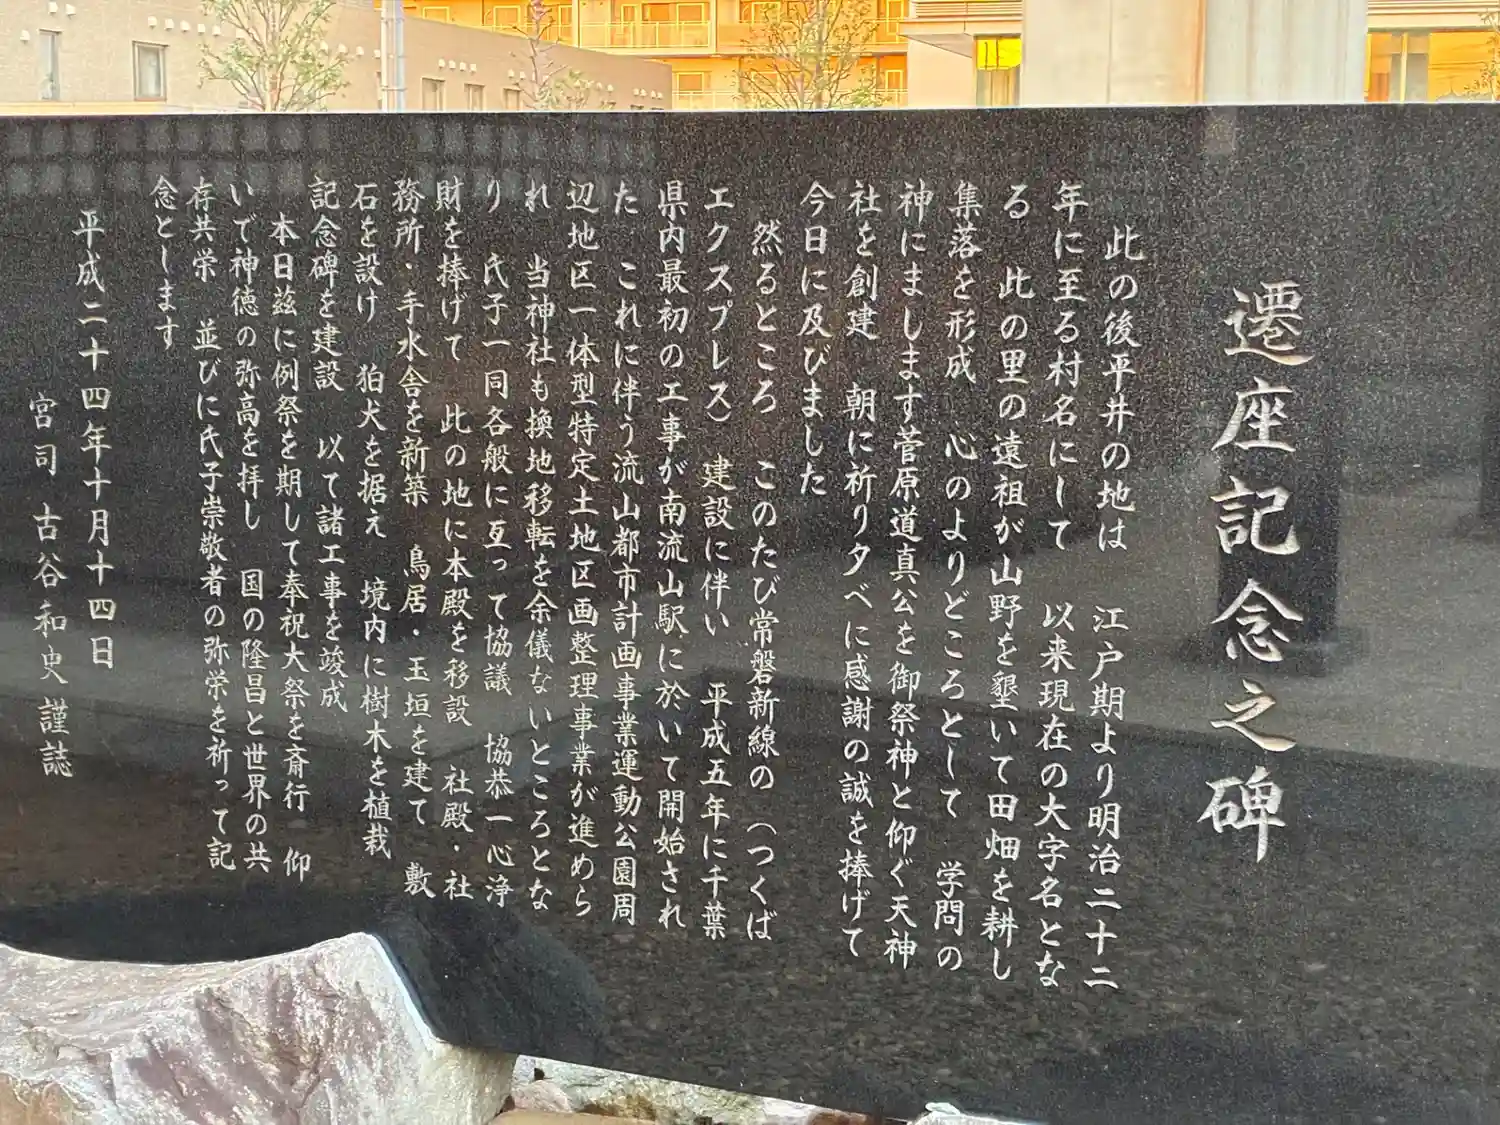 遷座記念之碑
此の後平井の地は　江戸期より明治二十二
年に至る村名にして　以来現在の大字名とな
る　此の里の遠祖が山野を墾いて田畑を耕し
集落を形成　心のよりどころとして　学問の
神にまします菅原道真公を御祭神と仰ぐ天神
社を創建　朝に祈り夕べに感謝の誠を捧げて
今日に及びました
然るところ　このたび常磐新線の（つくば
エクスプレス）建設に伴い　平成五年に千葉
県内最初の工事が南流山駅に於いて開始され
た　これに伴う流山都市計画事業運動公園周
辺地区一体型特定土地区画整理事業が進めら
れ　当神社も換地移転を余儀ないところとな
り　氏子一同各般に亙って協議　協恭一心浄
財を捧げて　此の地に本殿を移設　社殿・社
務所・手水舎を新築　鳥居・玉垣を建て　敷
石を設け　狛犬を据え　境内に樹木を植栽
記念碑を建設　以て諸工事を竣成
本日茲に例祭を期して奉祝大祭を斎行　仰
いで神徳の弥高を拝し　国の隆昌と世界の共
存共栄　並びに氏子崇敬者の弥栄を祈って記
念とします
平成二十四年十月十四日
宮司　古谷和史　謹誌